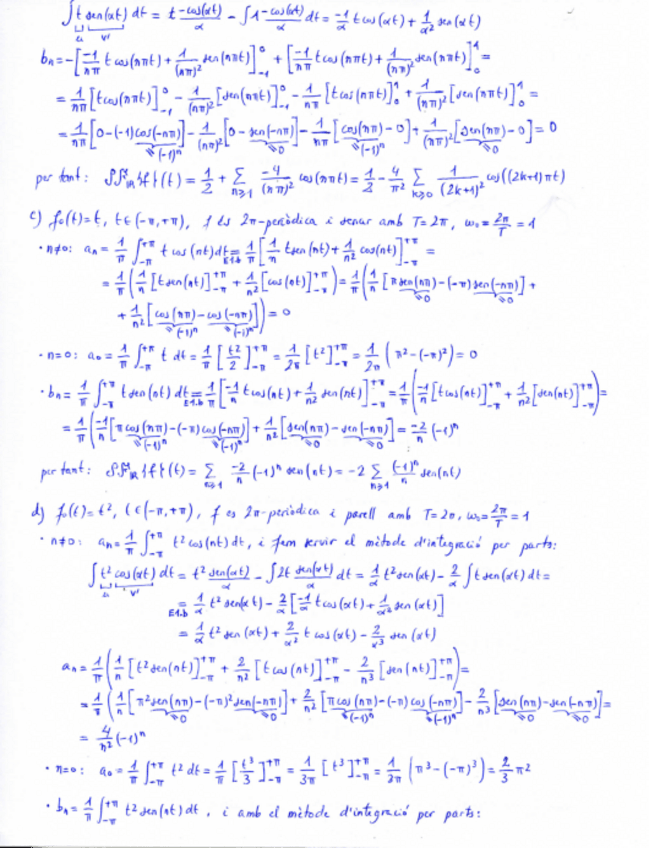 ∫ t sen(αt) dt = t -cos(αt)/α - ∫ 1 -cos(αt)/α dt = -1/α t cos(αt) + 1/α² sen(αt)
u v'
bₙ = -[-1/nπ t cos(nπt) + 1/(nπ)² sen(nπt)]₋₁⁰ + [-1/nπ t cos(nπt) + 1/(nπ)² sen(nπt)]₀¹ =
= 1/nπ [t cos(nπt)]₋₁⁰ - 1/(nπ)² [sen(nπt)]₋₁⁰ - 1/nπ [t cos(nπt)]₀¹ + 1/(nπ)² [sen(nπt)]₀¹ =
= 1/nπ [0-(-1)cos(-nπ)] - 1/(nπ)² [0 - sen(-nπ)] - 1/nπ [cos(nπ) - 0] + 1/(nπ)² [sen(nπ) - 0] = 0
(-1)ⁿ 0 (-1)ⁿ 0
per tant: {f}(t) = 1/2 + Σ n≥1 -4/(nπ)² cos(nπt) = 1/2 - 4/π² Σ k≥0 1/(2k+1)² cos((2k+1)πt)
c) f₀(t) = t, t∈(-π,+π), f és 2π-periòdica i senar amb T=2π, ω₀ = 2π/T = 1
· n≠0: aₙ = 1/π ∫₋π⁺π t cos(nt) dt = E1.b 1/π [1/n t sen(nt) + 1/n² cos(nt)]₋π⁺π =
= 1/π (1/n [t sen(nt)]₋π⁺π + 1/n² [cos(nt)]₋π⁺π) = 1/π (1/n [π sen(nπ) - (-π) sen(-nπ)] +
0 0
+ 1/n² [cos(nπ) - cos(-nπ)]) = 0
(-1)ⁿ (-1)ⁿ
· n=0: a₀ = 1/π ∫₋π⁺π t dt = 1/π [t²/2]₋π⁺π = 1/2π [t²]₋π⁺π = 1/2π (π² - (-π)²) = 0
· bₙ = 1/π ∫₋π⁺π t sen(nt) dt = E1.b 1/π [-1/n t cos(nt) + 1/n² sen(nt)]₋π⁺π = 1/π (-1/n [t cos(nt)]₋π⁺π + 1/n² [sen(nt)]₋π⁺π) =
= 1/π (-1/n [π cos(nπ) - (-π) cos(-nπ)] + 1/n² [sen(nπ) - sen(-nπ)] = -2/n (-1)ⁿ
(-1)ⁿ (-1)ⁿ 0 0
per tant: {f}(t) = Σ n≥1 -2/n (-1)ⁿ sen(nt) = -2 Σ n≥1 (-1)ⁿ/n sen(nt)
d) f₀(t) = t², t∈(-π,+π), f es 2π-periòdica i parell amb T=2π, ω₀ = 2π/T = 1
· n≠0: aₙ = 1/π ∫₋π⁺π t² cos(nt) dt, i fem servir el mètode d'integració per parts:
∫ t² cos(αt) dt = t² sen(αt)/α - ∫ 2t sen(αt)/α dt = 1/α t² sen(αt) - 2/α ∫ t sen(αt) dt =
u v'
= E1.b 1/α t² sen(αt) - 2/α [-1/α t cos(αt) + 1/α² sen(αt)]
= 1/α t² sen(αt) + 2/α² t cos(αt) - 2/α³ sen(αt)
aₙ = 1/π (1/n [t² sen(nt)]₋π⁺π + 2/n² [t cos(nt)]₋π⁺π - 2/n³ [sen(nt)]₋π⁺π) =
= 1/π (1/n [π² sen(nπ) - (-π)² sen(-nπ)] + 2/n² [π cos(nπ) - (-π) cos(-nπ)] - 2/n³ [sen(nπ) - sen(-nπ)] =
0 0 (-1)ⁿ (-1)ⁿ 0 0
= 4/n² (-1)ⁿ
· n=0: a₀ = 1/π ∫₋π⁺π t² dt = 1/π [t³/3]₋π⁺π = 1/3π [t³]₋π⁺π = 1/3π (π³ - (-π)³) = 2/3 π²
· bₙ = 1/π ∫₋π⁺π t² sen(nt) dt, i amb el mètode d'integració per parts: